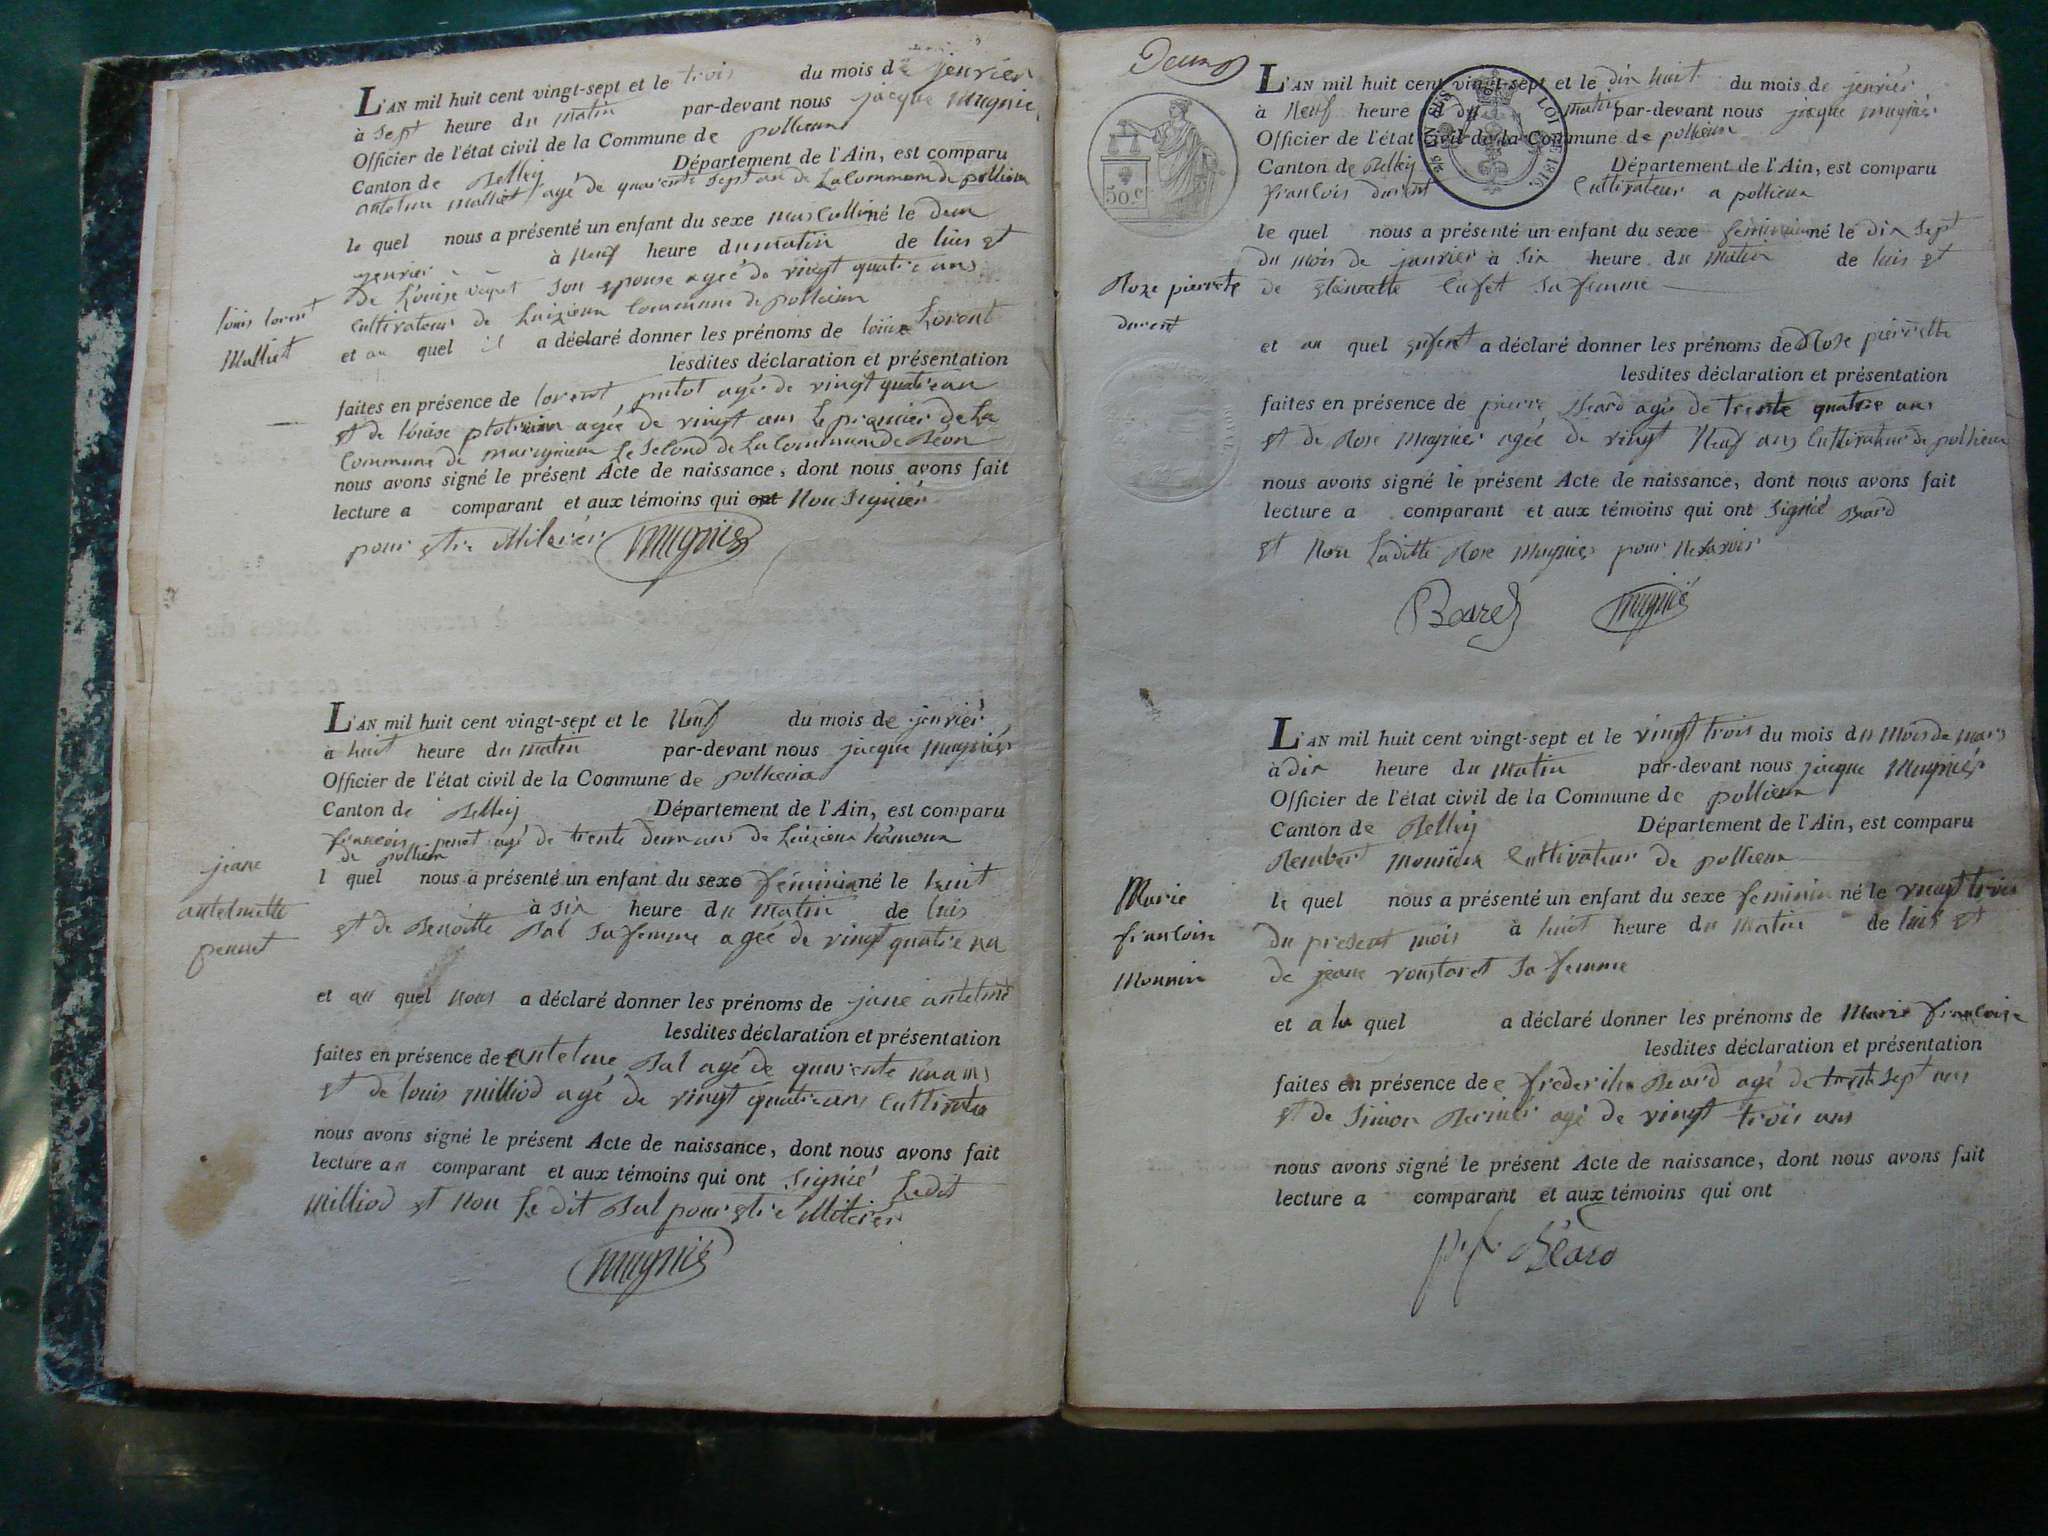 L'AN mil huit cent vingt-sept et le trois du mois de jenvier
à sept heure du matin par-devant nous jacque Mugnié
Officier de l'état civil de la Commune de pollieux
Canton de Belley Département de l'Ain, est comparu
antelme Molliet agé de quarente sept an de La Commune de pollieux
le quel nous a présenté un enfant du sexe masculin né le deux
jenvier à neuf heure du matin de luis et
de Louise son epouse ageé de vingt quatre ans
Cultivateur de Luizieux Commune de pollieux
et au quel il a déclaré donner les prénoms de louis Loront
lesdites déclaration et présentation
faites en présence de lorent agé de vingt quatre an
et de louise agée de vingt ans Le premier de La
Commune de marignieux Le Second de La Commune de Béon
nous avons signé le présent Acte de naissance, dont nous avons fait
lecture a comparant et aux témoins qui ont Non Signiér
pour etre Mugnié
louis lorent
Molliet
L'AN mil huit cent vingt-sept et le Neuf du mois de jenvier
à huit heure du matin par-devant nous jacque Mugniér
Officier de l'état civil de la Commune de pollieux
Canton de Belley Département de l'Ain, est comparu
francois penet agé de trente deux ans de Luizieux
de pollieux
l quel nous a présenté un enfant du sexe féminin né le huit
à six heure du matin de luis
et de Benoitte Bal sa femme ageé de vingt quatre
et au quel nous a déclaré donner les prénoms de jane antelme
lesdites déclaration et présentation
faites en présence de antelme Bal agé de quarente
et de louis milliod agé de vingt quatre ans
nous avons signé le présent Acte de naissance, dont nous avons fait
lecture au comparant et aux témoins qui ont signié Ledit
Milliod et Non Le dit Bal pour etre
Mugnié
jeane
antelmette
pennet
Deux
50.c
TIMBRE LOI DE 1816.
L'AN mil huit cent vingt-sept et le dix huit du mois de jenvier
à Neuf heure du matin par-devant nous jacque mugnié
Officier de l'état civil de la Commune de pollieux
Canton de Belley Département de l'Ain, est comparu
francois durent Cultivateur a pollieux
le quel nous a présenté un enfant du sexe féminin né le dix sept
du mois de janvier à six heure du matin de luis et
de sa femme
et au quel enfent a déclaré donner les prénoms de Rose pierrette
lesdites déclaration et présentation
faites en présence de pierre Beard agé de trente quatre ans
et de Rose mugnier ageé de vingt Neuf ans Cultivateur de pollieux
nous avons signé le présent Acte de naissance, dont nous avons fait
lecture a comparant et aux témoins qui ont Signiéé Beard
et Non Laditte Rose Mugnier pour Ne savoir
Beard Mugnié
Roze pierrete
durent
L'AN mil huit cent vingt-sept et le vingt trois du mois du mois de mars
à dix heure du matin par-devant nous jacque Mugniér
Officier de l'état civil de la Commune de pollieux
Canton de Belley Département de l'Ain, est comparu
Cultivateur de pollieux
le quel nous a présenté un enfant du sexe feminin né le vingt trois
du present mois à huit heure du matin de luis et
de jeane sa femme
et a la quel a déclaré donner les prénoms de Marie francoise
lesdites déclaration et présentation
faites en présence de frederike Beard agé de trente sept ans
et de Simon Bernier agé de vingt trois ans
nous avons signé le présent Acte de naissance, dont nous avons fait
lecture a comparant et aux témoins qui ont
p. f. Béard
Marie
francoise
Monnin